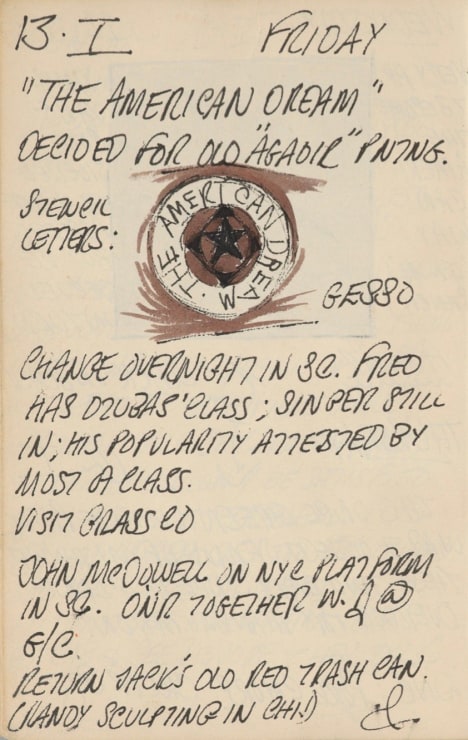 13·I FRIDAY
"THE AMERICAN DREAM"
DECIDED FOR OLD "AGADIR" PNTNG.
STENCIL
LETTERS:
THE AMERICAN DREAM
GESSO
CHANGE OVERNIGHT IN SC. FRED
HAS DZUBAS' CLASS; SINGER STILL
IN; HIS POPULARITY ATTESTED BY
MOST O CLASS.
VISIT BRASS CO
JOHN McDOWELL ON NYC PLATFORM
IN SC. DNR TOGETHER W. @
G/C.
RETURN JACK'S OLD RED TRASH CAN.
(RANDY SCULPTING IN CHI.)